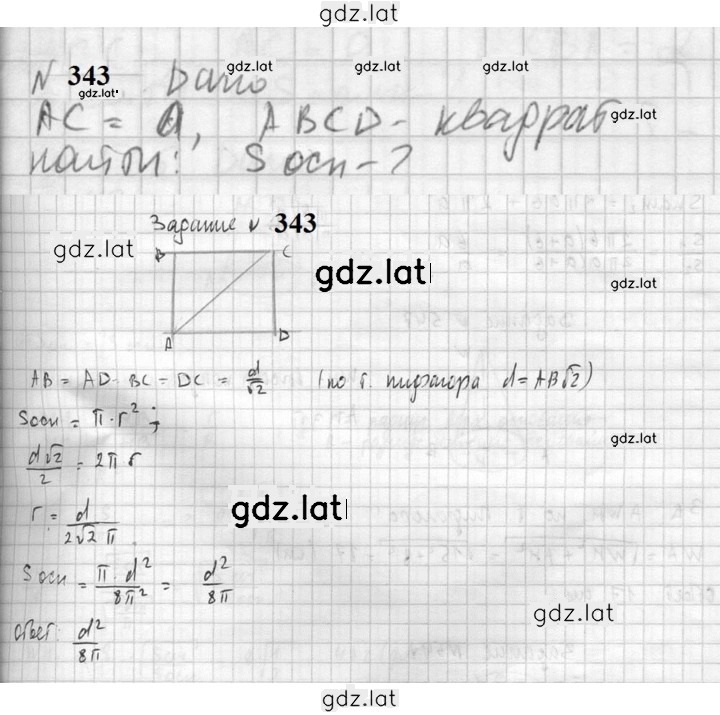 gdz.lat
N 343 Дано gdz.lat gdz.lat gdz.lat
gdz.lat
AC = d, ABCD - квадрат gdz.lat
найти: Sосн - ?
Задание N 343
gdz.lat
B C
gdz.lat
gdz.lat
A D
AB = AD = BC = DC = d/√2 (по т. пифагора d = AB√2)
Sосн = π · r² ;
gdz.lat
d√2/2 = 2π r
r = d/2√2 π
gdz.lat
Sосн = π · d²/8π² = d²/8π
gdz.lat
ответ: d²/8π
gdz.lat